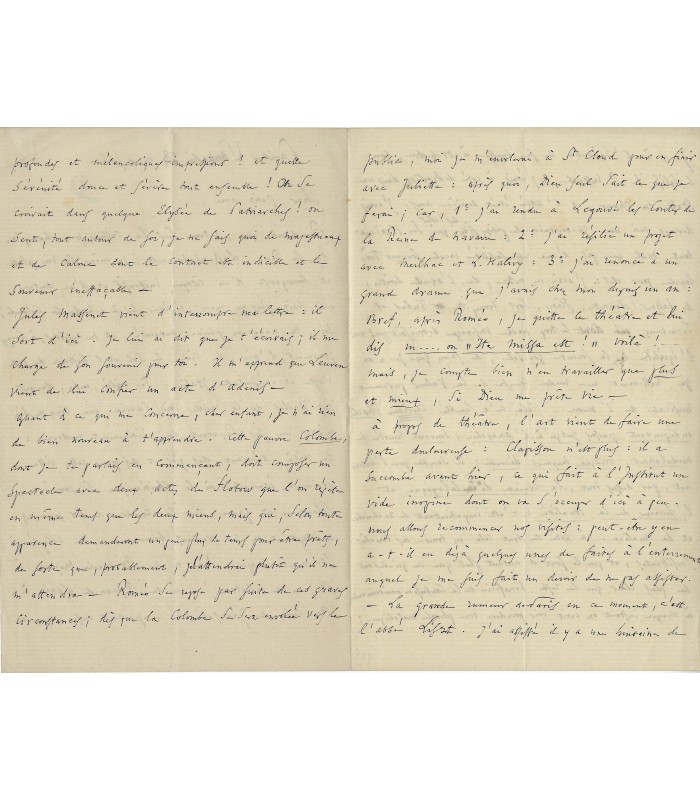 profondes et mélancoliques impressions ! et quelle
sérénité douce et sévère tout ensemble ! On se
croirait dans quelque Elysée de Patriarches ! on
sent, tout autour de soi, je ne sais quoi de majestueux
et de calme dont le contact est indicible et le
souvenir ineffaçable —
Jules Massenet vient d'interrompre ma lettre : il
sort d'ici. Je lui ai dit que je t'écrivais ; il me
charge de son souvenir pour toi. Il m'apprend que Leuven
vient de lui confier un acte d'Adenis —
Quant à ce qui me concerne, cher enfant, je n'ai rien
de bien nouveau à t'apprendre. Cette pauvre Colombe,
dont je te parlais en commençant, doit composer un
spectacle avec deux actes de Flotow que l'on répète
en même tems que les deux miens, mais qui, selon toute
apparence demanderont un peu plus de tems pour être prêts,
de sorte que, probablement, je l'attendrai plutôt qu'il ne
m'attendra — Roméo se repose par suite de ces graves
circonstances ; dès que la Colombe se sera envolée vers le
public, moi je m'envolerai à St Cloud pour en finir
avec Juliette : après quoi, Dieu seul sait ce que je
ferai ; car, 1º j'ai rendu à Legouvé les Contes de
la Reine de Navarre : 2º j'ai résilié un projet
avec Meilhac et L. Halévy : 3º j'ai renoncé à un
grand drame que j'avais chez moi depuis un an :
Bref, après Roméo, je quitte le théâtre et lui
dis m.... ou "Ite missa est !" voilà ! —
mais, je compte bien n'en travailler que plus
et mieux, si Dieu me prête vie —
à propos de théâtre, l'art vient de faire une
perte douloureuse : Clapisson n'est plus : il a
succombé avant hier, ce qui fait à l'Institut un
vide inopiné dont on va s'occuper d'ici à peu —
nous allons recommencer nos visites : peut-être y en
a-t-il eu déjà quelques unes de faites à l'enterrement
auquel je me suis fait un devoir de ne pas assister.
— La grande rumeur de Paris en ce moment, c'est
l'abbé Liszt. j'ai assisté il y a une huitaine de